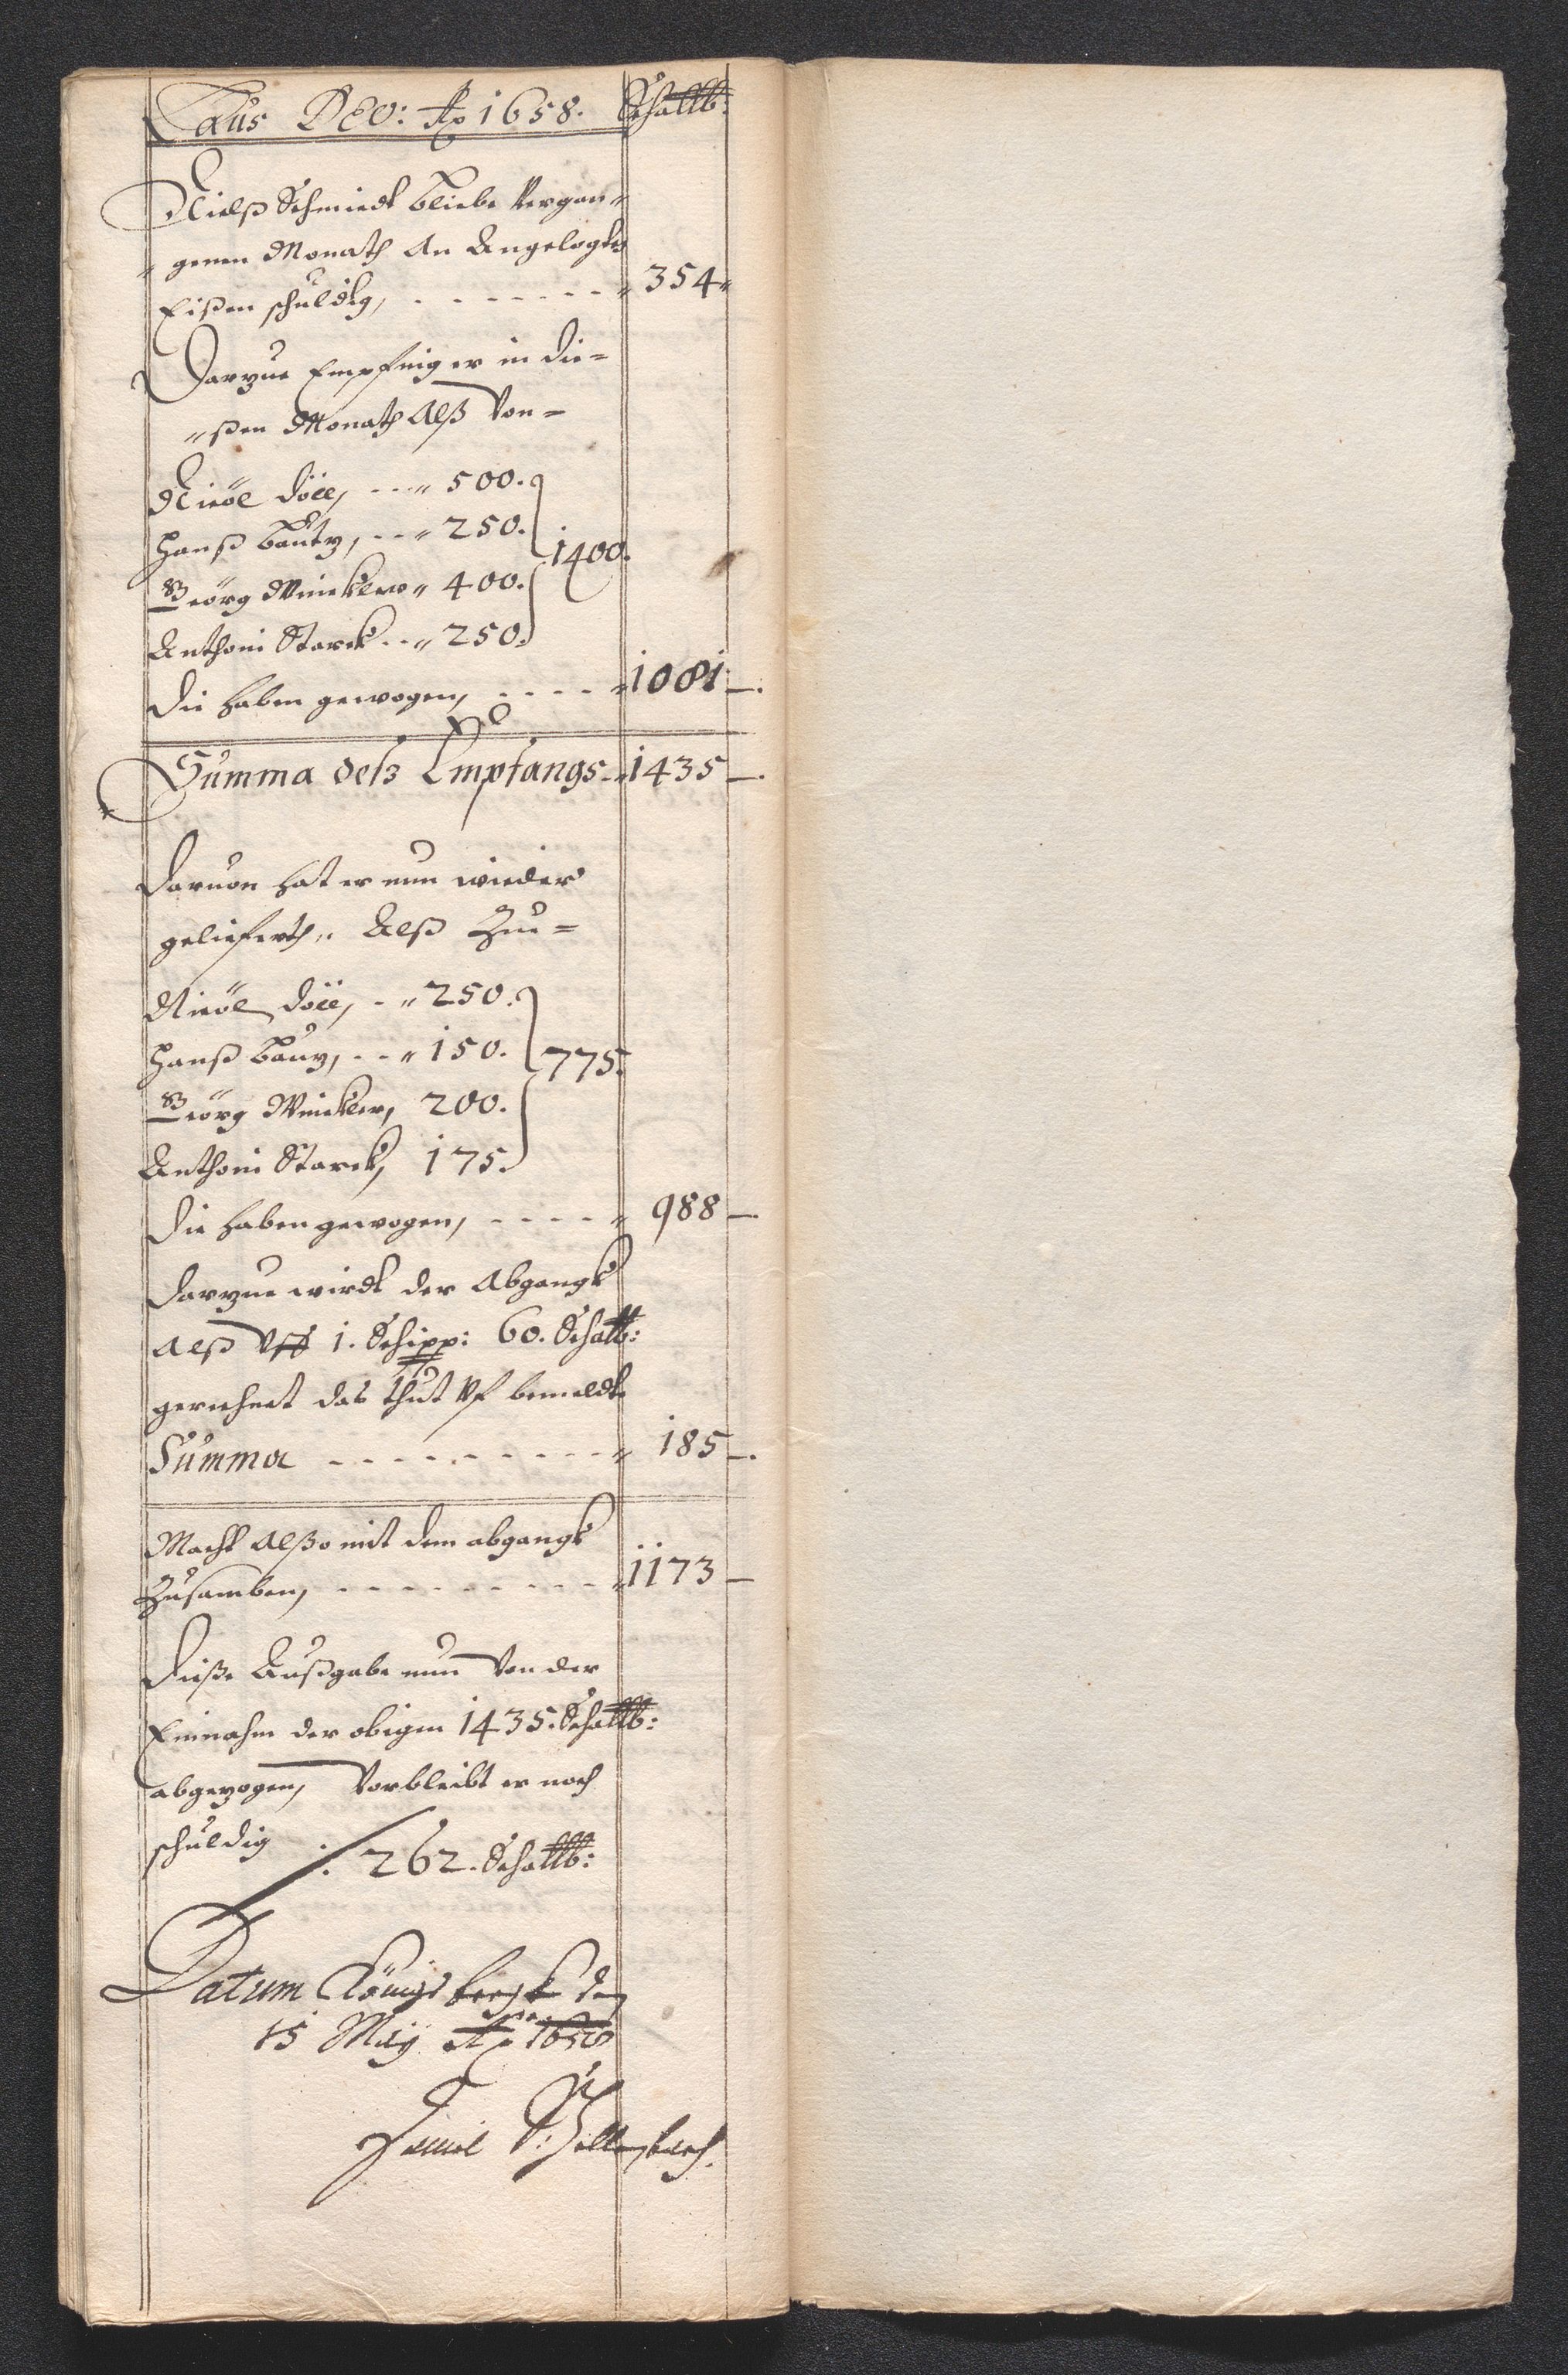 Laus DEO: Ao 1658. Schallb:
Nielß Schmiedt bliebe Vergan-
-genen Monath An Angelegtes
Eißen schuldig, - - - - - - - " 354 "
Darzue Empfing er in die=
"ßen Monath Alß von=
Nicöl Döll, - - - " 500.
Hanß Bautz, - - " 250.
1400.
Geörg Winckler " 400.
Anthoni Starck - - " 250.
Die haben gewogen, - - - - " 1081 -.
Summa deß Empfangs - " 1435 -.
Daruon hat er nun wieder
geliefferth, Alß Zue=
Nicöl Döll, - " 250.
Hanß Bauz, - - " 150.
775.
Geörg Winckler, 200.
Anthoni Starck, 175.
Die haben gewogen, - - - - " 988 -.
Darzue wirdt der Abgangk
Alß Vff 1. Schipp: 60. Schallb:
gerechnet das thut Vf bemeldte
Summa - - - - - - - - - " 185 -.
Macht Alßo mit dem abgangk
Zusamben, - - - - - - - - - " 1173 -
Dieße Außgabe nun Von der
Einnahm der obigen 1435. Schallb:
abgezogen, Vorbleibt er noch
schuldig ./. 262. Schallb:
Datum Königsbergk den
15 Maÿ Ao 1658